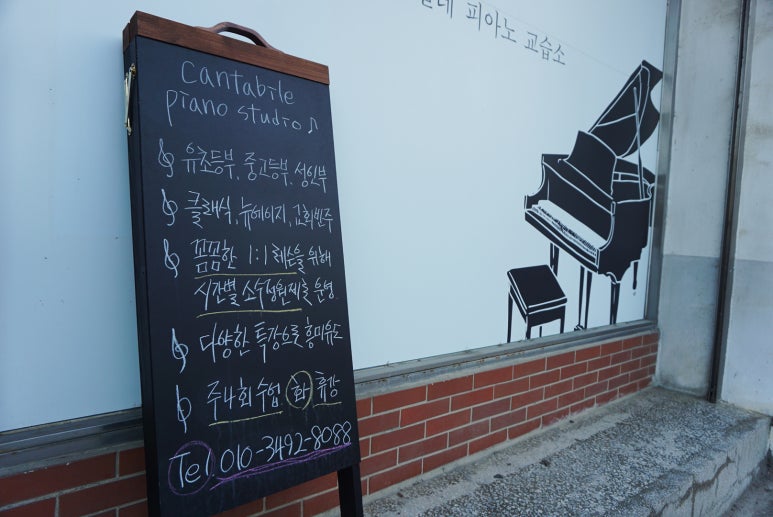 피아노 교습소
Cantabile
piano studio♪
유초등부, 중고등부, 성인부
클래식, 뉴에이지, 교회반주
꼼꼼한 1:1 레슨을 위해
시간별 소수정원제로 운영.
다양한 특강으로 흥미유도
주4회 수업 화 휴강
Tel 010-3492-8088